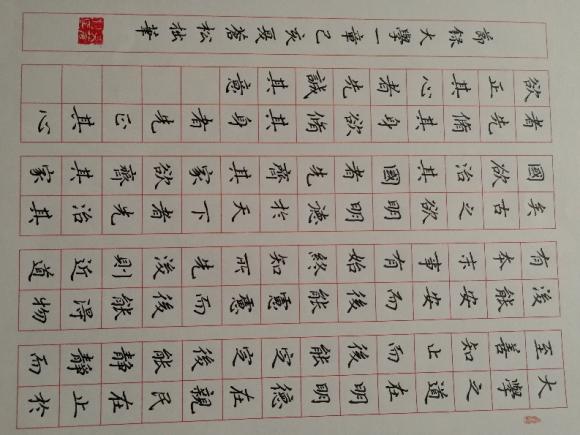 大學之道在明明德在親民在止於
至善知止而後能定定後能靜靜而
後能安安而後能慮慮而後能得物
有本末事有始終知所先後則近道
矣古之欲明明德於天下者先治其
國欲治其國者先齊其家欲齊其家
者先脩其身欲脩其身者先正其心
欲正其心者先誠其意
節錄大學一章己亥夏蒼松拙筆